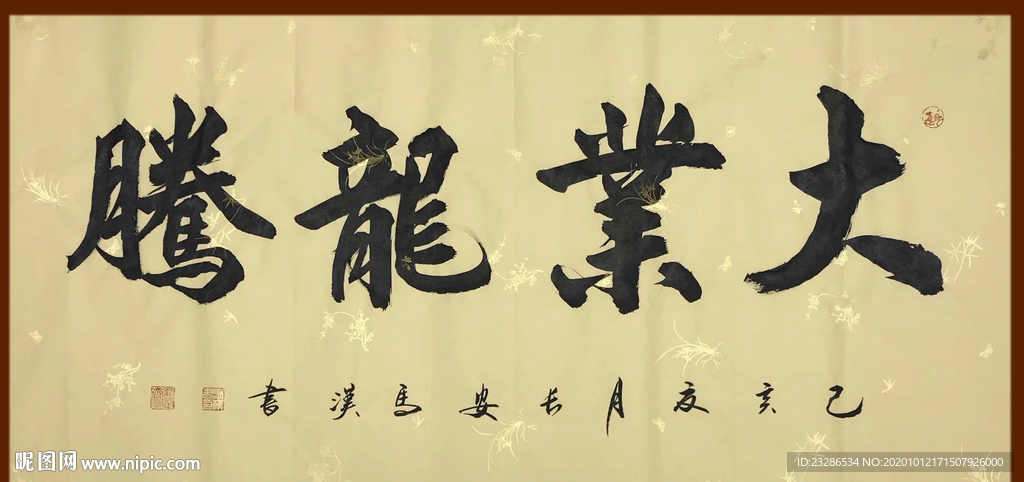 大業龍騰
己亥夏月长安馬漢書
昵图网 www.nipic.com
ID:23286534 NO:20201012171507926000